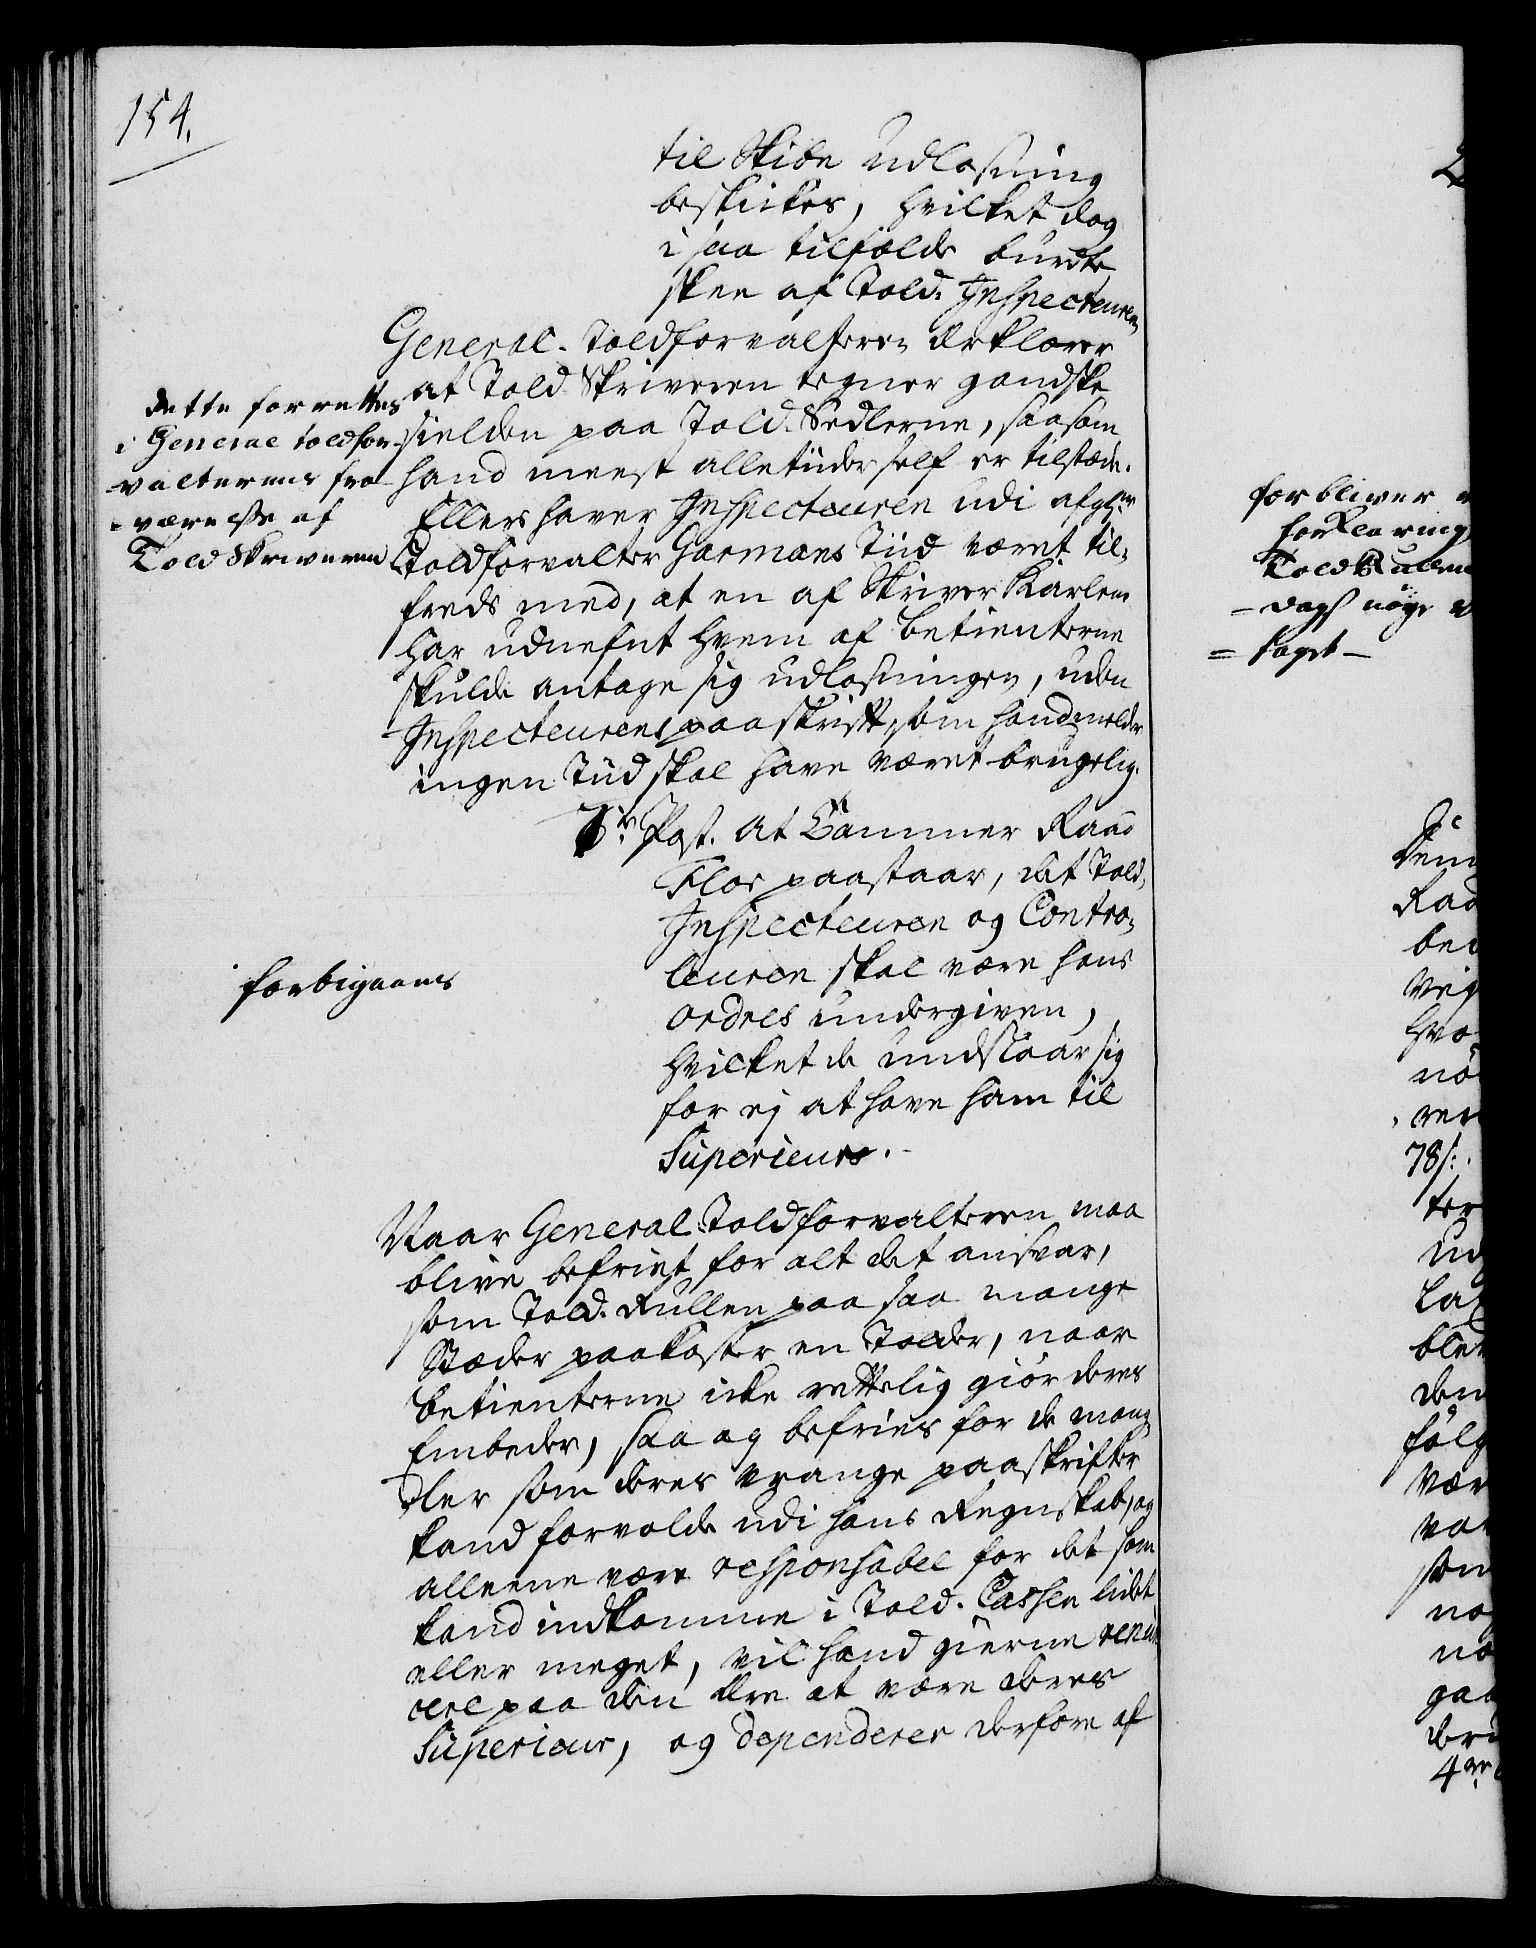 154.
til Skibe Udlosning
beskikkes, hvilket dog
i saa tilfælde burde
skee af Told-Inspecteuren
General-Toldforvalteren Erklærer
at Told-Skriveren tegner gandske
sielden paa Told-Sedlerne, saasom
hand meest alletider self er tilstæde.
Ellers haver Inspecteuren udi afg:
Toldforvalter Garmans Tiid været til-
freds med, at en af Skriver Karlene
har udnefnt hvem af betienterne
skulde antage sig udlosningen, uden
Inspecteurens paaskrift, som hand melder
ingen Tiid skal have været brugelig.
dette forrettes
i General toldfor-
valterens fra-
værelse af
Told Skriveren
7de Post. At Cammer Raad
Flor paastaar, det Told-
Inspecteuren og Contro-
leuren skal være hans
ordres undergiven,
hvilket de undslaar sig
for ej at have ham til
Superieur.
forbigaaes
Naar General-Toldforvalteren maa
blive befriet for alt det ansvar,
som Told-Rullen paa saa mange
Stæder paakaster en Tolder, naar
betienterne icke rettelig giør deres
Embeder, saa og befries for de mang-
ler som deres vrange paaskrifter
kand forvolde udi hans Regnskab, og
alleene være responsabel for det som
kand indkomme i Told-Cassen lidet
eller meget, vil hand gierne renun-
cere paa den Ære at være deres
Superieur, og dependerer derfore af
forbliver
forklaring,
Told Rullens
dags nøye
taget
Raad
78/: